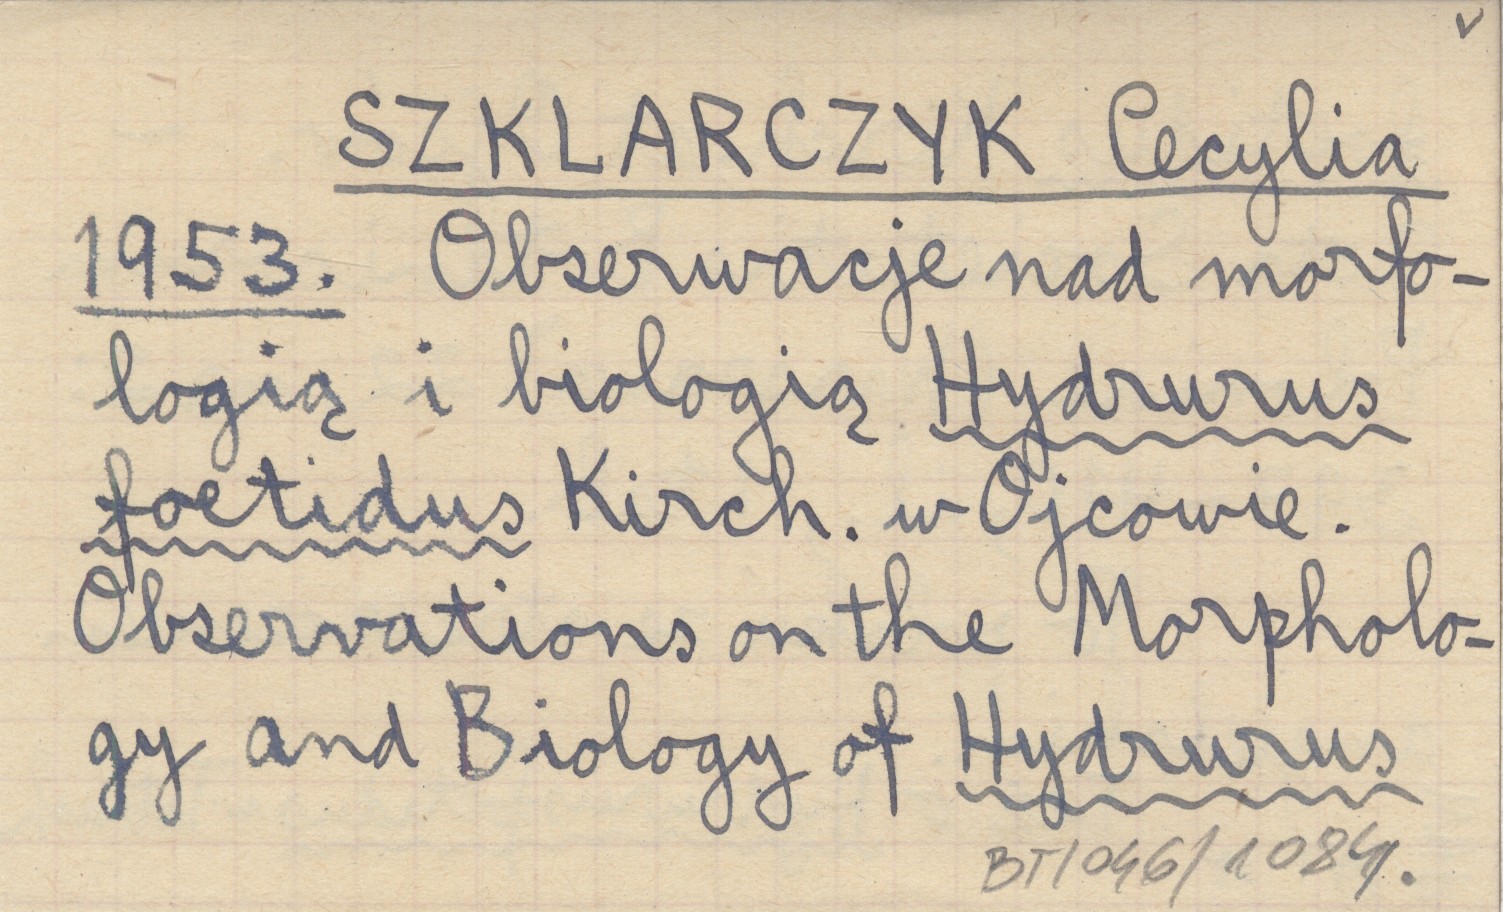 SZKLARCZYK Cecylia
1953. Obserwacje nad morfo-
logią i biologią Hydrurus
foetidus Kirch. w Ojcowie.
Observations on the Morpholo-
gy and Biology of Hydrurus
BT/046/1084.